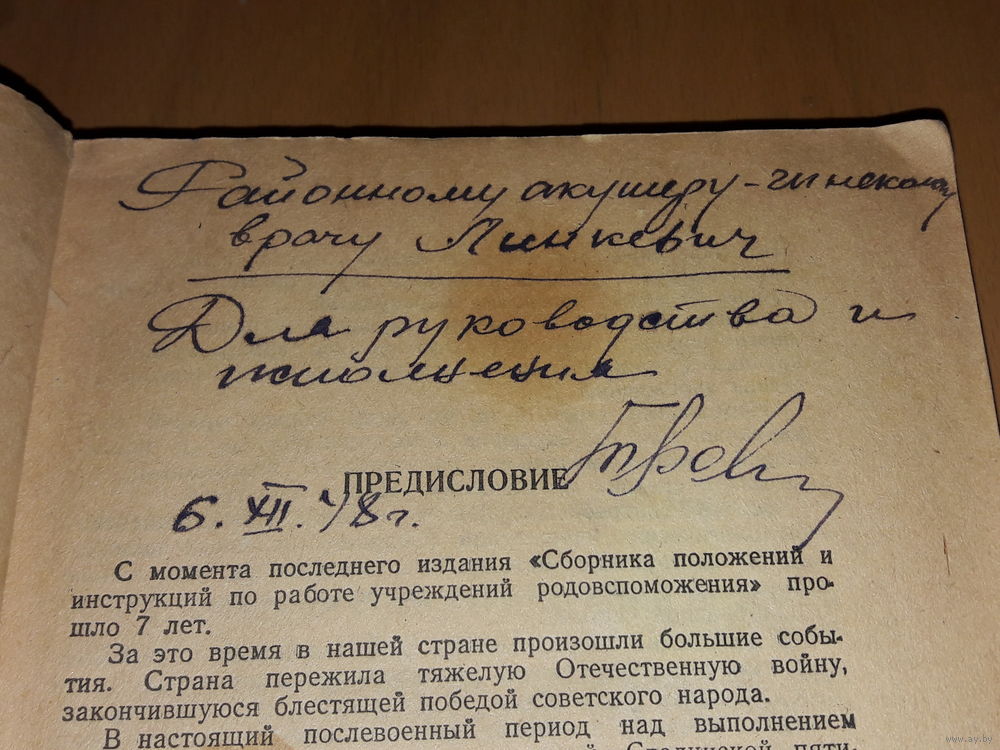 Районному акушеру-гинекологу
врачу Линкевич
Для руководства и
исполнения
ПРЕДИСЛОВИЕ
6. XII. 48 г.
С момента последнего издания «Сборника положений и
инструкций по работе учреждений родовспоможения» про-
шло 7 лет.
За это время в нашей стране произошли большие собы-
тия. Страна пережила тяжелую Отечественную войну,
закончившуюся блестящей победой советского народа.
В настоящий послевоенный период над выполнением
Сталинской пяти-
www.ay.by